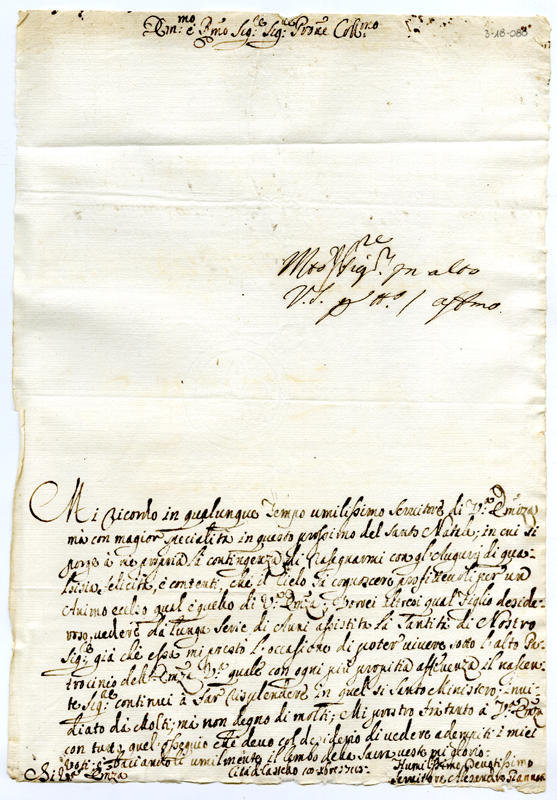 Em.mo e Rmo Sig.re Sig.re Prone Coll.mo
3-18-088
Mto Sig.re in alto
V.S. affmo.
Mi Ricordo in qualunque Tempo umilissimo Servitore di V.ra Em.za
ma con magior specialità in questo prossimo del Santo Natale; in cui si
porge à me propria la contingenza di Rasegnarmi con gl'Augurij di qua-
lsisia felicità, e contenti, che il Cielo sà conoscere profittevoli per un
Animo ecelso qual'è quello di V.ra Em.za; Vorrei altresi qual figlio deside-
roso, vedere da lunga serie di Anni assistita la Santità di Nostro
Sig.re già che essa mi presta l'occasione di poter vivere sotto l'alto Pa-
trocinio dell'Em.za V.ra quale con ogni più propitia affluenza il
te Sig.re continui à far Risplendere in quel si Santo Ministero; invi-
diato da Molti; ma non degno di molti; Mi prostro frà tanto à V.ra Em.za
con tutto quel Ossequio che devo col desiderio di vedere adempiti i miei
Voti; e baciandole umilmente il Lembo della Sacra veste mi glorio:
Di V.ra Em.za
Humilissimo Devotissimo
Servitore, Alesandro